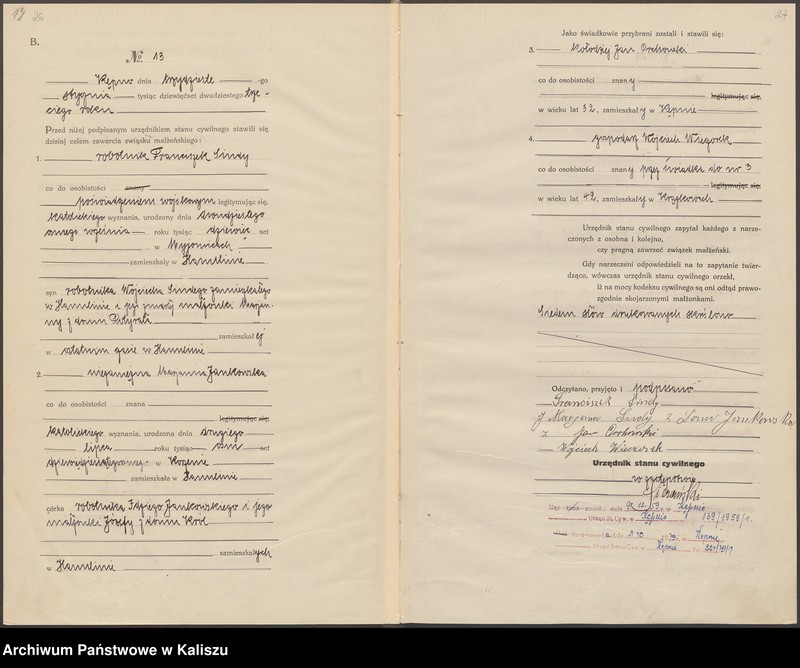 B.
№ 13
Kępno dnia trzydzieste -go
stycznia tysiąc dziewięćset dwudziestego trze-
ciego roku
Przed niżej podpisanym urzędnikiem stanu cywilnego stawili się
dzisiaj celem zawarcia związku małżeńskiego:
1. robotnik Franciszek Smdy
co do osobistości znany
poświadczeniem wojskowym legitymując się,
katolickiego wyznania, urodzony dnia dwudziestego
ósmego roku tysiąc dziewięć set
w Myjomicach
zamieszkały w Hanulinie
syn robotnika Wojciecha zamieszkałego
w Hanulinie i jego zmarłej małżonki Marjan-
ny z domu
zamieszkałej
w ostatnim czasie w Hanulinie
2. niezamężna Marjanna Jankowska
co do osobistości znana
legitymując się,
katolickiego wyznania, urodzona dnia drugiego
lipca roku tysiąc ośm set
w
zamieszkała w Hanulinie
córka robotnika Idziego Jankowskiego i jego
małżonki Józefy z domu Król
zamieszkałych
w Hanulinie
27
Jako świadkowie przybrani zostali i stawili się:
3. kołodziej Jan Orchowski
co do osobistości znany
legitymując się,
w wieku lat 32, zamieszkały w Kępnie
4. gospodarz Wojciech Wieczorek
co do osobistości znany przez świadka do nr 3
legitymując się,
w wieku lat 42, zamieszkały w Krążkowach
Urzędnik stanu cywilnego zapytał każdego z narze-
czonych z osobna i kolejno,
czy pragną zawrzeć związek małżeński.
Gdy narzeczeni odpowiedzieli na to zapytanie twier-
dząco, wówczas urzędnik stanu cywilnego orzekł,
iż na mocy kodeksu cywilnego są oni odtąd prawo-
zgodnie skojarzonymi małżonkami.
Siedem słów drukowanych skreślono
Odczytano, przyjęto i podpisano
Franciszek
Marjanna z Domu Jankowska
Jan Orchowski
Wojciech Wieczorek
Urzędnik stanu cywilnego
w zastępstwie
Kępnie
Urząd St. Cyw. w Kępnie 139/1959/1.
Kępnie
Urząd Stanu Cyw. w Kępnie
Archiwum Państwowe w Kaliszu